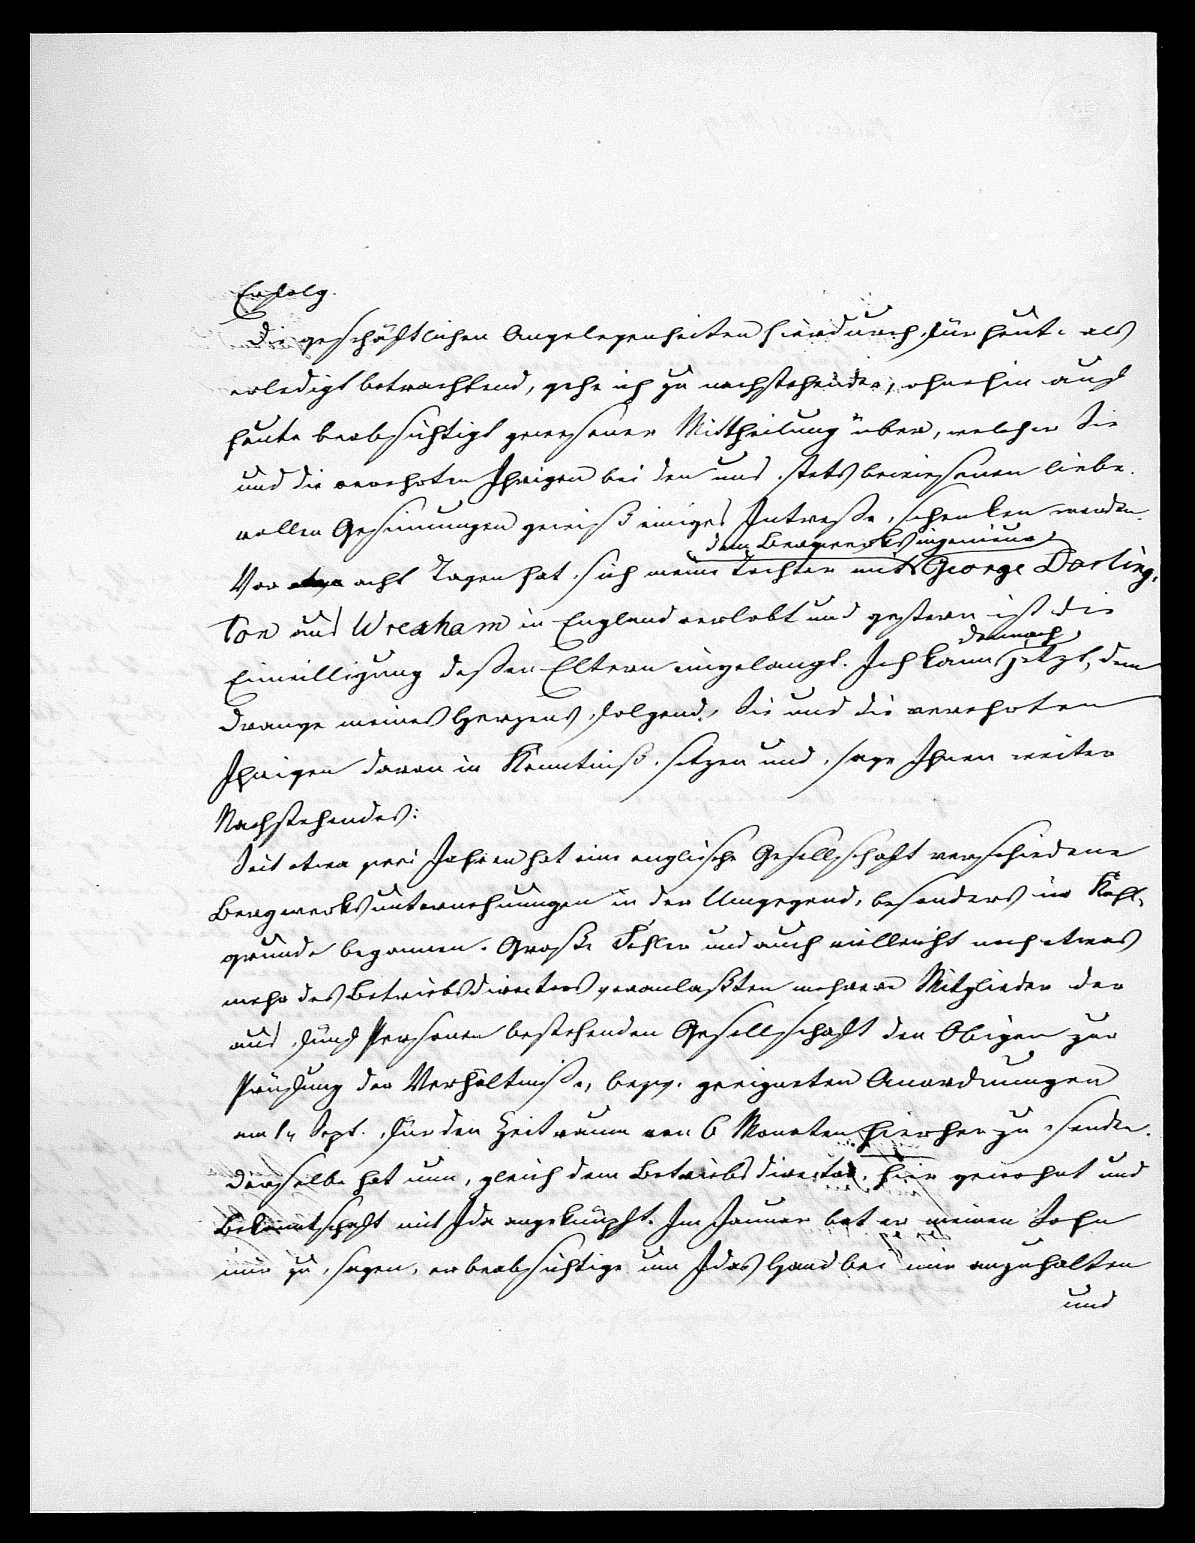 Erfolg.
Die geschäftlichen Angelegenheiten hierdurch für heute als
erledigt betrachtend, gehe ich zu nachstehender, ohnehin auf
heute beabsichtigt gewesener Mittheilung über, welcher Sie
und die verehrten Ihrigen bei den uns stets bewiesenen liebe-
vollen Gesinnungen gewiß einiges Intresse schenken werden.
dem Bergwerksingenieur
Vor acht Tagen hat sich meine Tochter mit George Darling-
ton aus Wrexham in England verlobt und gestern ist die
Einwilligung deßen Eltern eingelangt. Ich kann jetzt, dem
demnach
Drange meines Herzens folgend, Sie und die verehrten
Ihrigen davon in Kenntniß setzen und sage Ihnen weiter
Nachstehendes:
Seit etwa zwei Jahren hat eine englische Gesellschaft verschiedene
Bergwerksunternehmungen in der Umgegend, besonders im Kohl-
grunde begonnen. Große Fehler und auch vielleicht noch etwas
mehr des Betriebsdirectors veranlaßten mehrere Mitglieder der
aus fünf Personen bestehenden Gesellschaft den Obigen zur
Prüfung der Verhältniße, bezw. geeigneten Anordnungen
am 1n Sept. für den Zeitraum von 6 Monaten hierher zu senden.
Derselbe hat nun, gleich dem Betriebsdirector, hier gewohnt und
Bekanntschaft mit Ida angeknüpft. Im Januar bat er meinen Sohn
mir zu sagen, er beabsichtige um Idas Hand bei mir anzuhalten
und